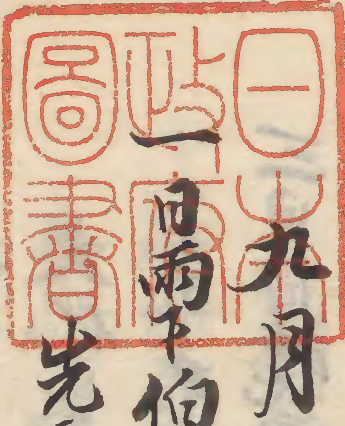 日本
政府
圖書
九月
一日雨下伯
先